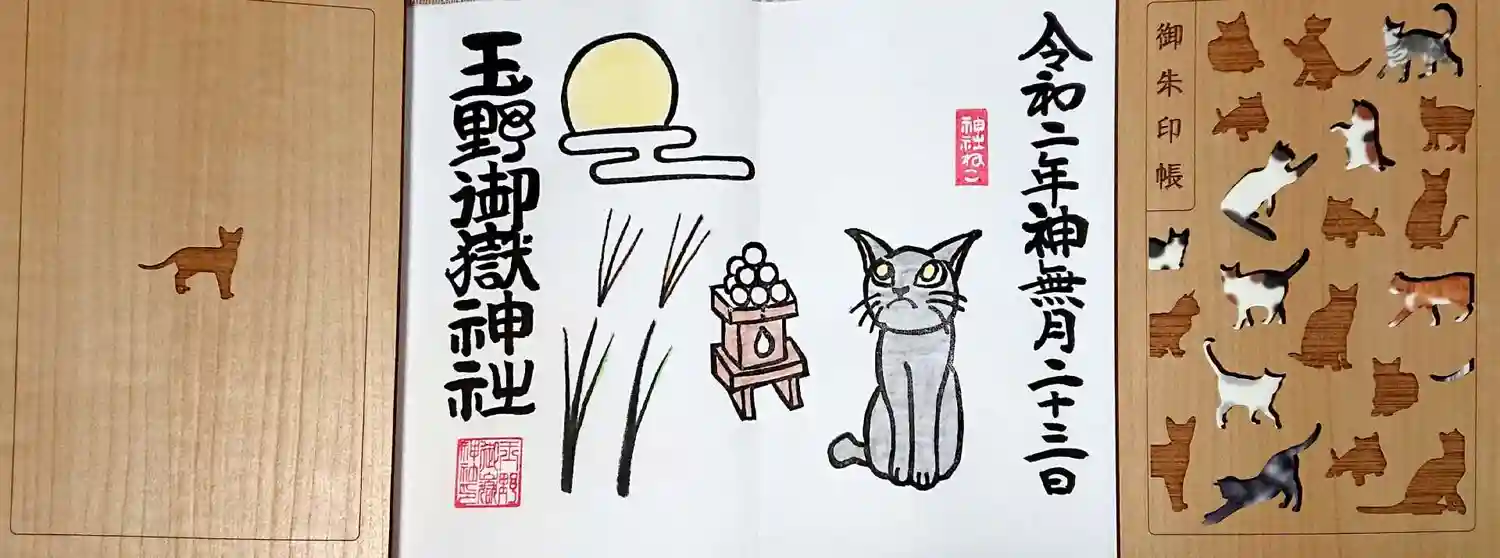 御朱印帳
令和二年神無月二十三日
神社ねこ
玉野御嶽神社
玉野
御嶽
神社印